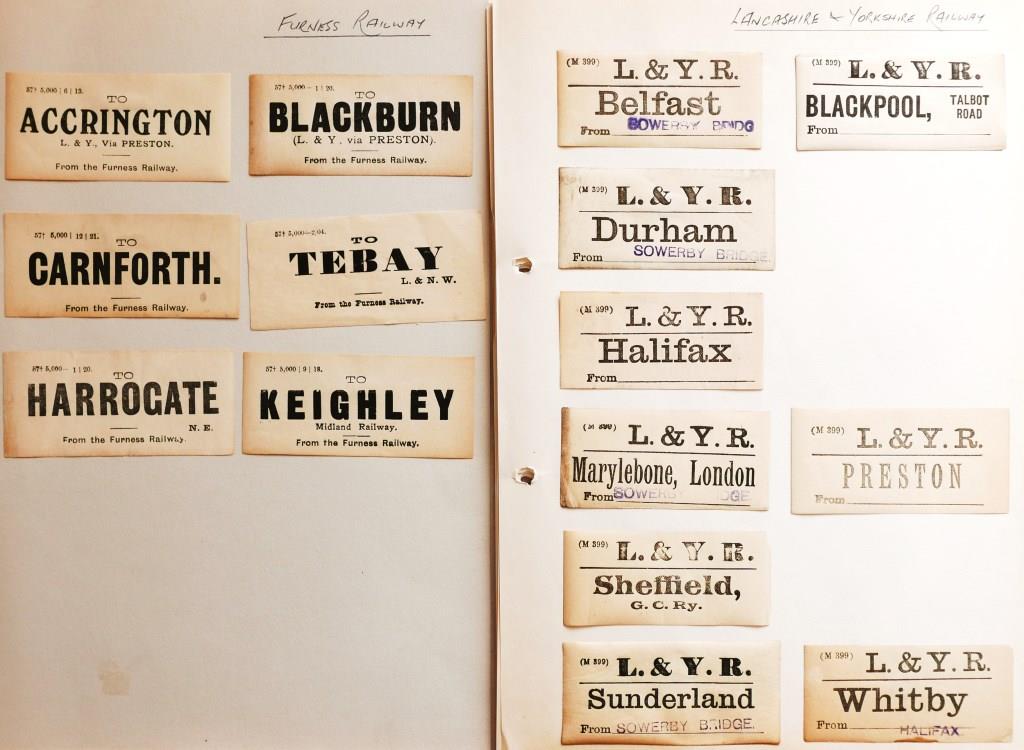 FURNESS RAILWAY
57† 5,000 | 6 | 13.
TO
ACCRINGTON
L. & Y., Via PRESTON.
From the Furness Railway.
57† 5,000— 1 | 20.
TO
BLACKBURN
(L. & Y. via PRESTON).
From the Furness Railway.
57† 5,000 | 12 | 21.
TO
CARNFORTH.
From the Furness Railway.
57† 5,000—2,04.
TO
TEBAY
L. & N. W.
From the Furness Railway.
57† 5,000— 1 | 20.
TO
HARROGATE
N. E.
From the Furness Railway.
57† 5,000 | 9 | 18.
TO
KEIGHLEY
Midland Railway.
From the Furness Railway.
LANCASHIRE & YORKSHIRE RAILWAY
(M 399) L. & Y. R.
Belfast
From SOWERBY BRIDG
(M 399) L. & Y. R.
BLACKPOOL, TALBOT ROAD
From
(M 399) L. & Y. R.
Durham
From SOWERBY BRIDGE.
(M 399) L. & Y. R.
Halifax
From
(M 399) L. & Y. R.
Marylebone, London
From SOWERBY IDGE
(M 399) L. & Y. R.
PRESTON
From
(M 399) L. & Y. R.
Sheffield,
G. C. Ry.
(M 399) L. & Y. R.
Sunderland
From SOWERBY BRIDGE.
(M 399) L. & Y. R.
Whitby
From HALIFAX